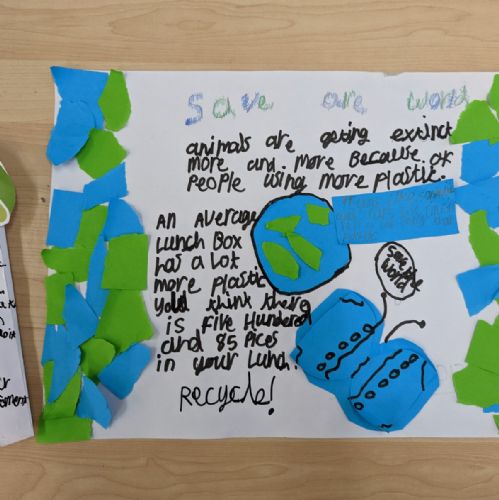 Save are world
animals are geting extinct
more and more Because of
People using more Plastic.
AN Average
Lunch Box
has a lot
more Plastic
Yould think there
is Five Hundered
and 85 Pices
in your Lunch!
Recycle!
Save the
World